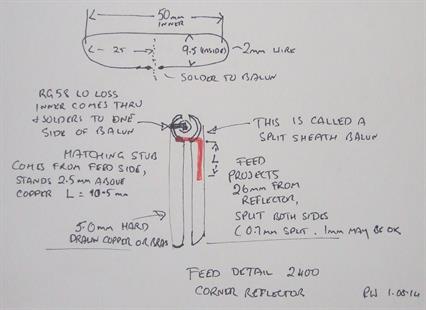 50mm
INNER
25
9.5 (INSIDE)
2mm WIRE
SOLDER TO BALUN
RG58 LO LOSS
INNER COMES THRU
& SOLDERS TO ONE
SIDE OF BALUN
THIS IS CALLED A
SPLIT SHEATH BALUN
MATCHING STUB
COMES FROM FEED SIDE,
STANDS 2.5mm ABOVE
COPPER L = 10.5mm
L
FEED
PROJECTS
26mm FROM
REFLECTOR,
SPLIT BOTH SIDES
(0.7mm SPLIT. 1mm MAY BE OK
5.0mm HARD
DRAWN COPPER OR BRASS
FEED DETAIL 2400
CORNER REFLECTOR
PW 1.08.14